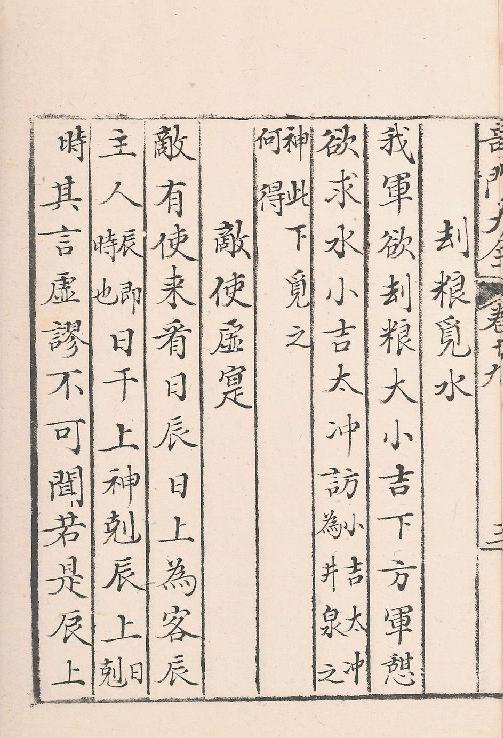 刦粮覓水
我軍欲刦粮大小吉下方軍憇
欲求水小吉太冲訪小吉太冲為井泉之
神此何得下覓之
敵使虛寔
敵有使来看日辰日上為客辰
主人辰即時也日干上神剋辰上剋日
時其言虛謬不可聞若是辰上